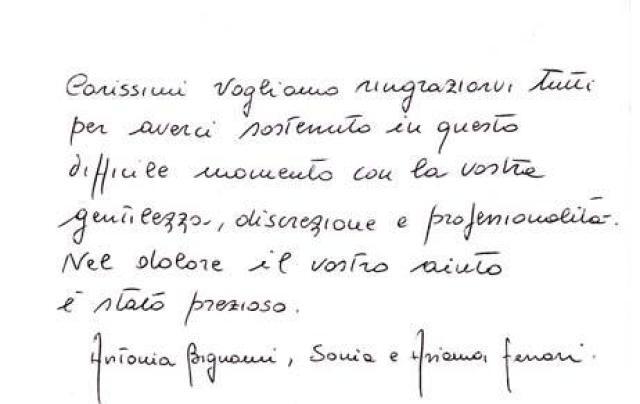 Carissimi vogliamo ringraziarvi tutti
per averci sostenuto in questo
difficile momento con la vostra
gentilezza, discrezione e professionalità.
Nel dolore il vostro aiuto
è stato prezioso.
Antonia Bignami, Sonia e Arianna Ferrari.